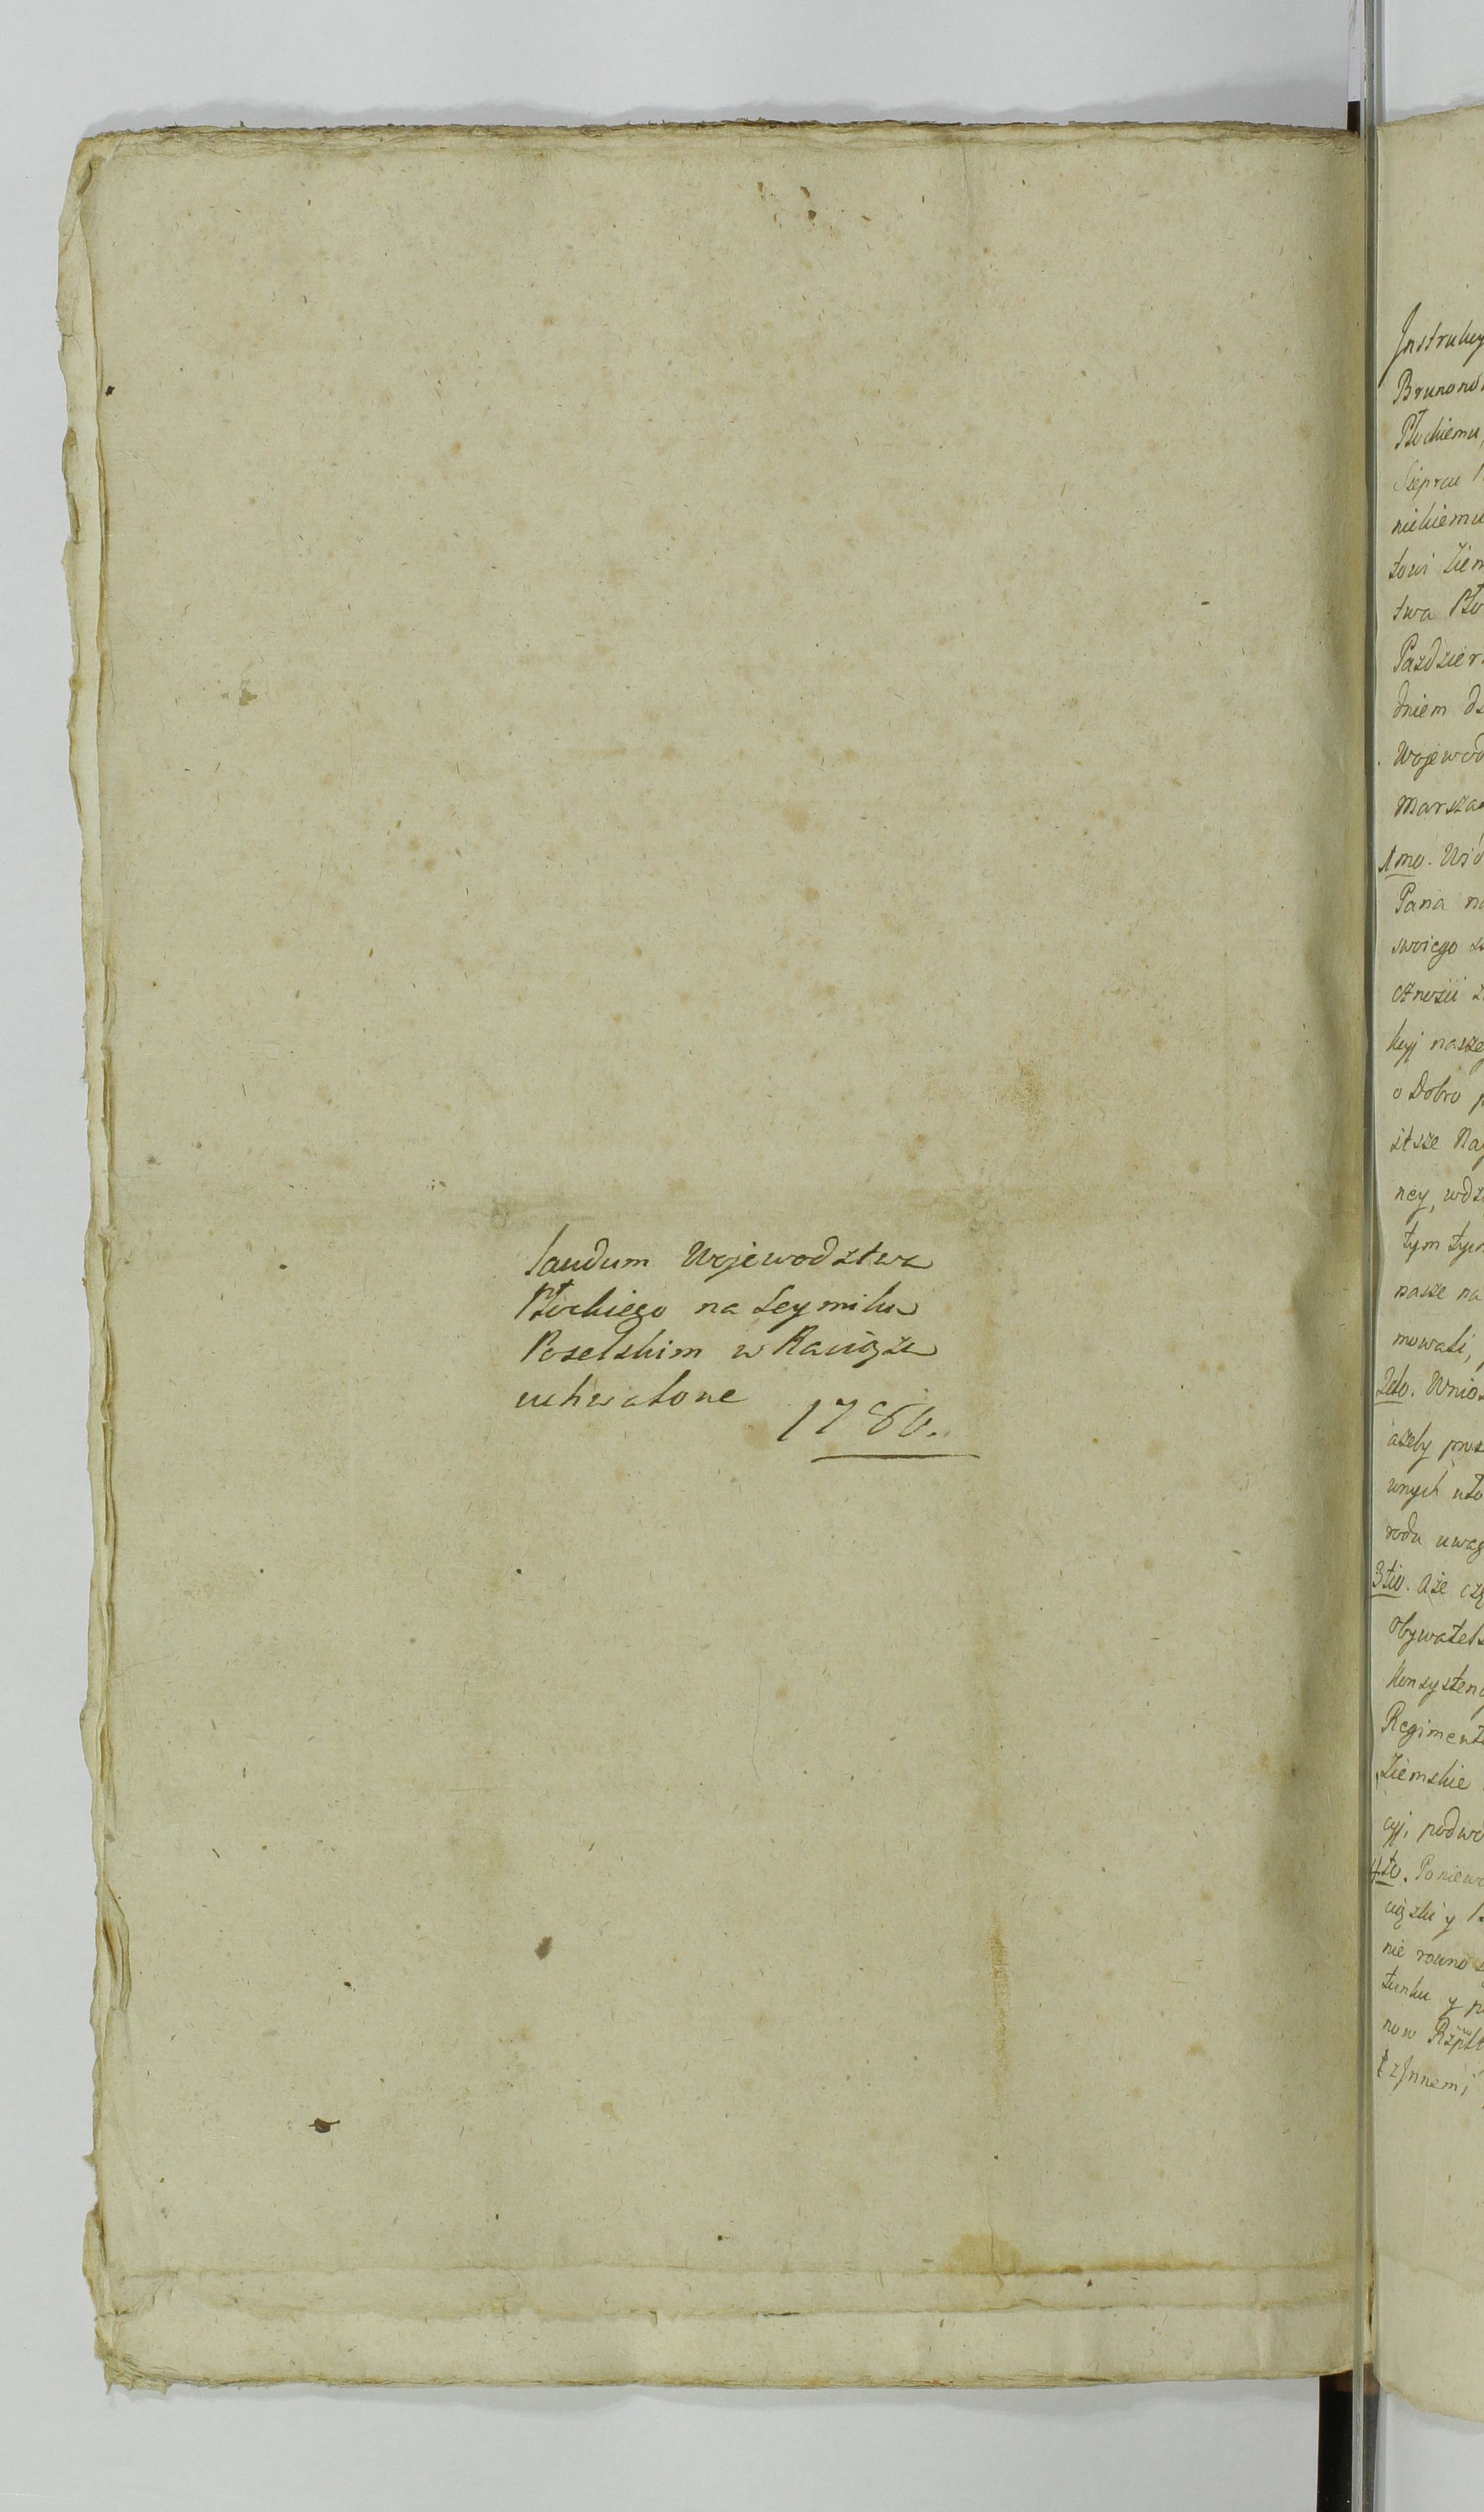 laudum Wojewodztwa
Płockiego na Seymiku
Poselskim w Raciążu
uchwalone
1786.
Brunono
Płockiemu,
Sieprcu
nickiemu
towi Ziem
twa Pło
Pazdzier
dniem dz
Wojewod
Marsza
1mo.
Pana na
swoiego
naszey
o Dobro p
ney, wdz
tym tym
nasze na
mowali,
2do. Wnios
azeby
wnych uło
rodu uwag
3tio. Aże czę
Obywatels
Konsystenc
Regimenta
Ziemskie
cyj, podwo
4to. Poniewa
nie rowno
tunku y p
now Rzplt
z Jnnemi